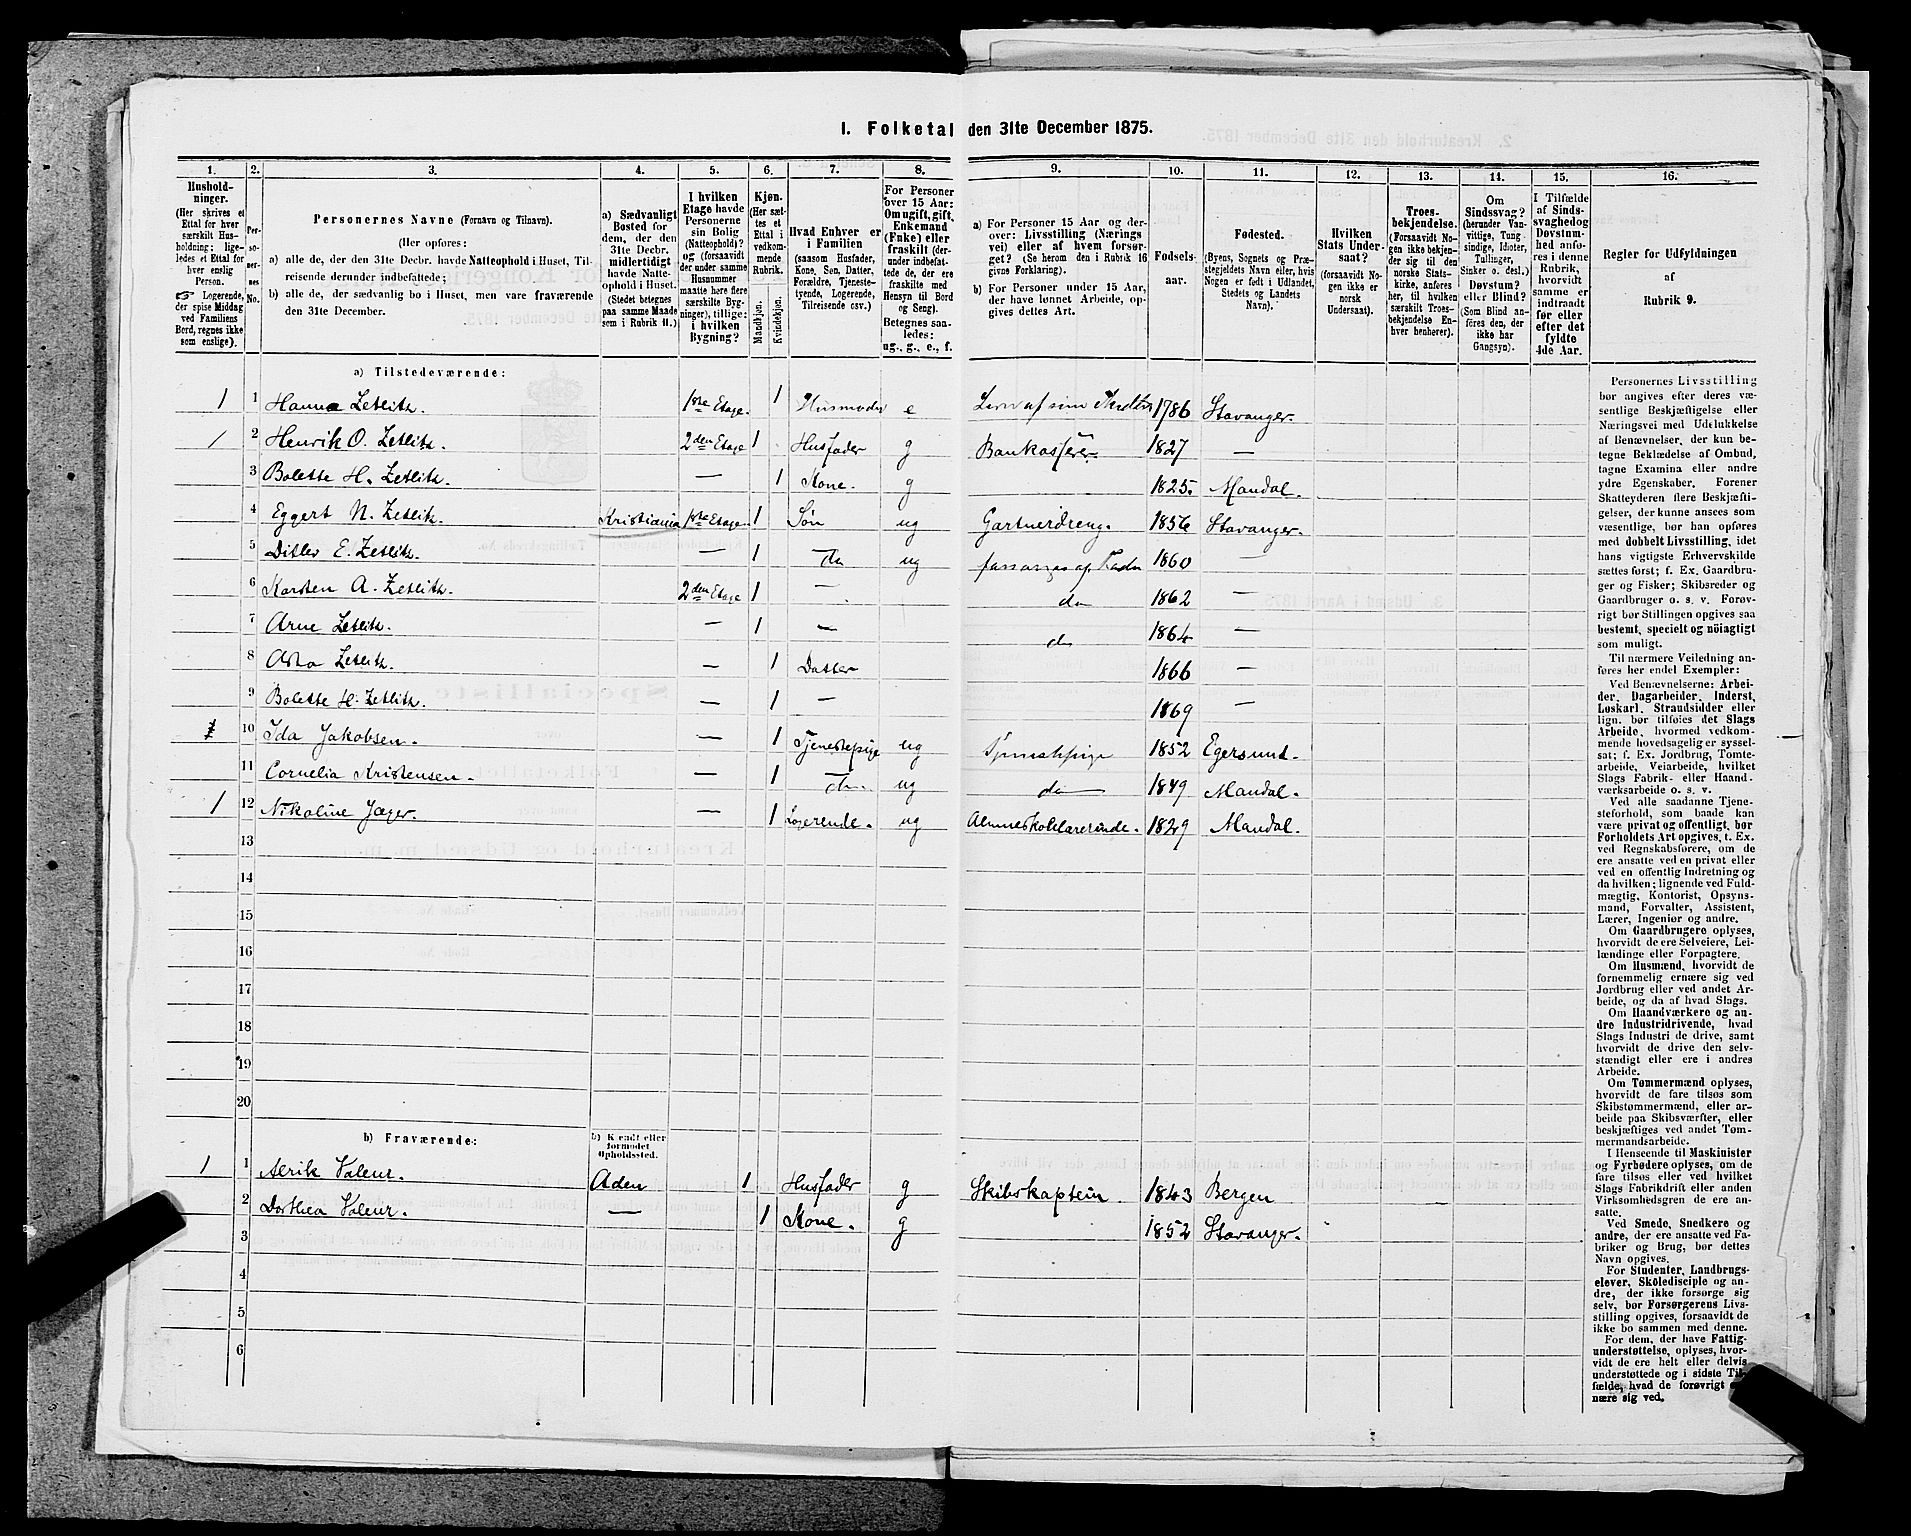 1. Folketal den 31te December 1875.
1. 2. 3. 4. 5. 6. 7. 8. 9. 10. 11. 12. 13. 14. 15. 16.
Hushold-
ninger.
(Her skrives et
Ettal for hver
særskilt Hus-
holdning; lige-
ledes et Ettal for
hver enslig
Person.
☞ Logerende,
der spise Middag
ved Familiens
Bord, regnes ikke
som enslige).
Per-
so-
ner-
nes
No.
Personernes Navne (Fornavn og Tilnavn).
(Her opføres:
a) alle de, der den 31te Decbr. havde Natteophold i Huset, Til-
reisende derunder indbefattede;
b) alle de, der sædvanlig bo i Huset, men vare fraværende
den 31te December.
a) Sædvanligt
Bosted for
dem, der den
31te Decbr.
midlertidigt
havde Natte-
ophold i Huset.
(Stedet betegnes
paa samme Maade
som i Rubrik 11.)
I hvilken
Etage havde
Personerne
sin Bolig
(Natteophold)?
og (forsaavidt
der under samme
Husnummer
maatte høre flere
særskilte Byg-
ninger), tillige:
i hvilken
Bygning?
Kjøn.
(Her sæt-
tes et
Ettal i
vedkom-
mende
Rubrik.
Mandkjøn.
Kvindekjøn.
Hvad Enhver er
i Familien
(saasom Husfader,
Kone, Søn, Datter,
Forældre, Tjeneste-
tyende, Logerende,
Tilreisende osv.)
For Personer
over 15 Aar:
Om ugift, gift,
Enkemand
(Enke) eller
fraskilt (der-
under indbefat-
tede de, der ere
fraskilte med
Hensyn til Bord
og Seng).
Betegnes saa-
ledes:
ug., g., e., f.
a) For Personer 15 Aar og der-
over: Livsstilling (Nærings
vei) eller af hvem forsør-
get? (Se herom den i Rubrik 16
givne Forklaring).
b) For Personer under 15 Aar,
der have lønnet Arbeide, op-
gives dettes Art.
Fødsels-
aar.
Fødested.
(Byens, Sognets og Præ-
stegjeldets Navn eller, hvis
Nogen er født i Udlandet,
Stedets og Landets
Navn).
Hvilken
Stats Under-
saat?
(forsaavidt No-
gen ikke er
norsk
Undersaat).
Troes-
bekjendelse.
(Forsaavidt No-
gen ikke bekjen-
der sig til den
norske Stats-
kirke, anføres
her, til hvilken
særskilt Troes-
bekjendelse En-
hver henhører).
Om
Sindssvag?
(herunder Van-
vittige, Tung-
sindige, Idioter,
Tullinger,
Sinker o. desl.)
Døvstum?
eller Blind?
(Som Blind an-
føres den, der
ikke har
Gangsyn).
I Tilfælde
af Sinds-
svaghed og
Døvstum-
hed anfø-
res i denne
Rubrik,
hvorvidt
samme er
indtraadt
før eller
efter det
fyldte
4de Aar.
Regler for Udfyldningen
af
Rubrik 9.
a) Tilstedeværende:
1 1 Hanna Zetlitz. 1ste Etage. 1 Husmoder e 1786 Stavanger.
1 2 Henrik O. Zetlitz. 2den Etage 1 Husfader g Bankasserer 1827 —
3 Bolette H. Zetlitz. — 1 Kone. g 1825. Mandal.
4 Eggert N. Zetlitz. Kristiania 1ste Etage 1 Søn ug Gartnerdreng. 1856 Stavanger.
5 Ditlev E. Zetlitz. — 1 do ug forsørges af Fader 1860 —
6 Karsten A. Zetlitz. 2den Etage 1 — do 1862 —
7 Arne Zetlitz. — 1 — do 1864 —
8 Asta Zetlitz. — 1 Datter 1866 —
9 Bolette H. Zetlitz. — 1 — 1869 —
10 Ida Jakobsen. — 1 Tjenestepige ug Tjenestepige 1852 Egersund.
11 Cornelia Kristensen. — 1 do. ug do 1849 Mandal.
1 12 Nikoline Jæger. — 1 Logerende. ug Almueskolelærerinde. 1829 Mandal.
13
14
15
16
17
18
19
20
b) Fraværende: b) Kendt eller
formodet
Opholdssted.
1 1 Aerik Valeur. Aden 1 Husfader g Skibskaptein 1843 Bergen
2 Dorthea Valeur. — 1 Kone. g 1852 Stavanger.
3
4
5
6
Personernes Livsstilling
bør angives efter deres væ-
sentlige Beskjæftigelse eller
Næringsvei med Udelukkelse
af Benævnelser, der kun be-
tegne Beklædelse af Ombud,
tagne Examina eller andre
ydre Egenskaber. Forener
Skatteyderen flere Beskjæfti-
gelser, der kunne ansees som
væsentlige, bør han opføres
med dobbelt Livsstilling, idet
hans vigtigste Erhvervskilde
sættes først; f. Ex. Gaardbru-
ger og Fisker; Skibsreder og
Gaardbruger o. s. v. Forøv-
rigt bør Stillingen opgives saa
bestemt, specielt og nöiagtigt
som muligt.
Til nærmere Veiledning an-
føres her endel Exempler:
Ved Benævnelserne: Arbei-
der, Dagarbeider, Inderst,
Løskarl, Strandsidder eller
lign. bør tilføies det Slags
Arbeide, hvormed vedkom-
mende hovedsagelig er syssel-
sat; f. Ex. Jordbrug, Tomte-
arbeide, Veiarbeide, hvilket
Slags Fabrik- eller Haand-
værksarbeide o. s. v.
Ved alle saadanne Tjene-
steforhold, som baade kan
være privat og offentligt, bør
Forholdets Art opgives, t. Ex.
ved Regnskabsførere, om de
ere ansatte ved en privat eller
ved en offentlig Indretning og
da hvilken; lignende ved Fuld-
mægtig, Kontorist, Opsyns-
mand, Forvalter, Assistent,
Lærer, Ingeniør og andre.
Om Gaardbrugere oplyses,
hvorvidt de ere Selveiere, Lei-
lændinge eller Forpagtere.
Om Husmænd, hvorvidt de
fornemmelig ernære sig ved
Jordbrug eller ved andet Ar-
beide, og da af hvad Slags.
Om Haandværkere og an-
dre Industridrivende, hvad
Slags Industri de drive, samt
hvorvidt de drive den selv-
stændigt eller ere i andres
Arbeide.
Om Tømmermænd oplyses,
hvorvidt de fare tilsøs som
Skibstømmermænd, eller ar-
beide paa Skibsværfter, eller
beskjæftiges ved andet Tøm-
mermandsarbeide.
I Henseende til Maskinister
og Fyrbødere oplyses, om de
fare tilsøs eller ved hvilket
Slags Fabrikdrift eller anden
Virksomhedsgren de ere an-
satte.
Ved Smede, Snedkere og
andre, der ere ansatte ved Fa-
briker og Brug, bør dettes
Navn opgives.
For Studenter, Landbrugs-
elever, Skoledisciple og an-
dre, der ikke forsørge sig
selv, bør Forsørgerens Livs-
stilling opgives, forsaavidt de
ikke bo sammen med denne.
For dem, der have Fattig-
understøttelse, oplyses, hvor-
vidt de ere helt eller delvis
understøttede og i sidste Til-
fælde, hvad de forøvrigt
nære sig ved.